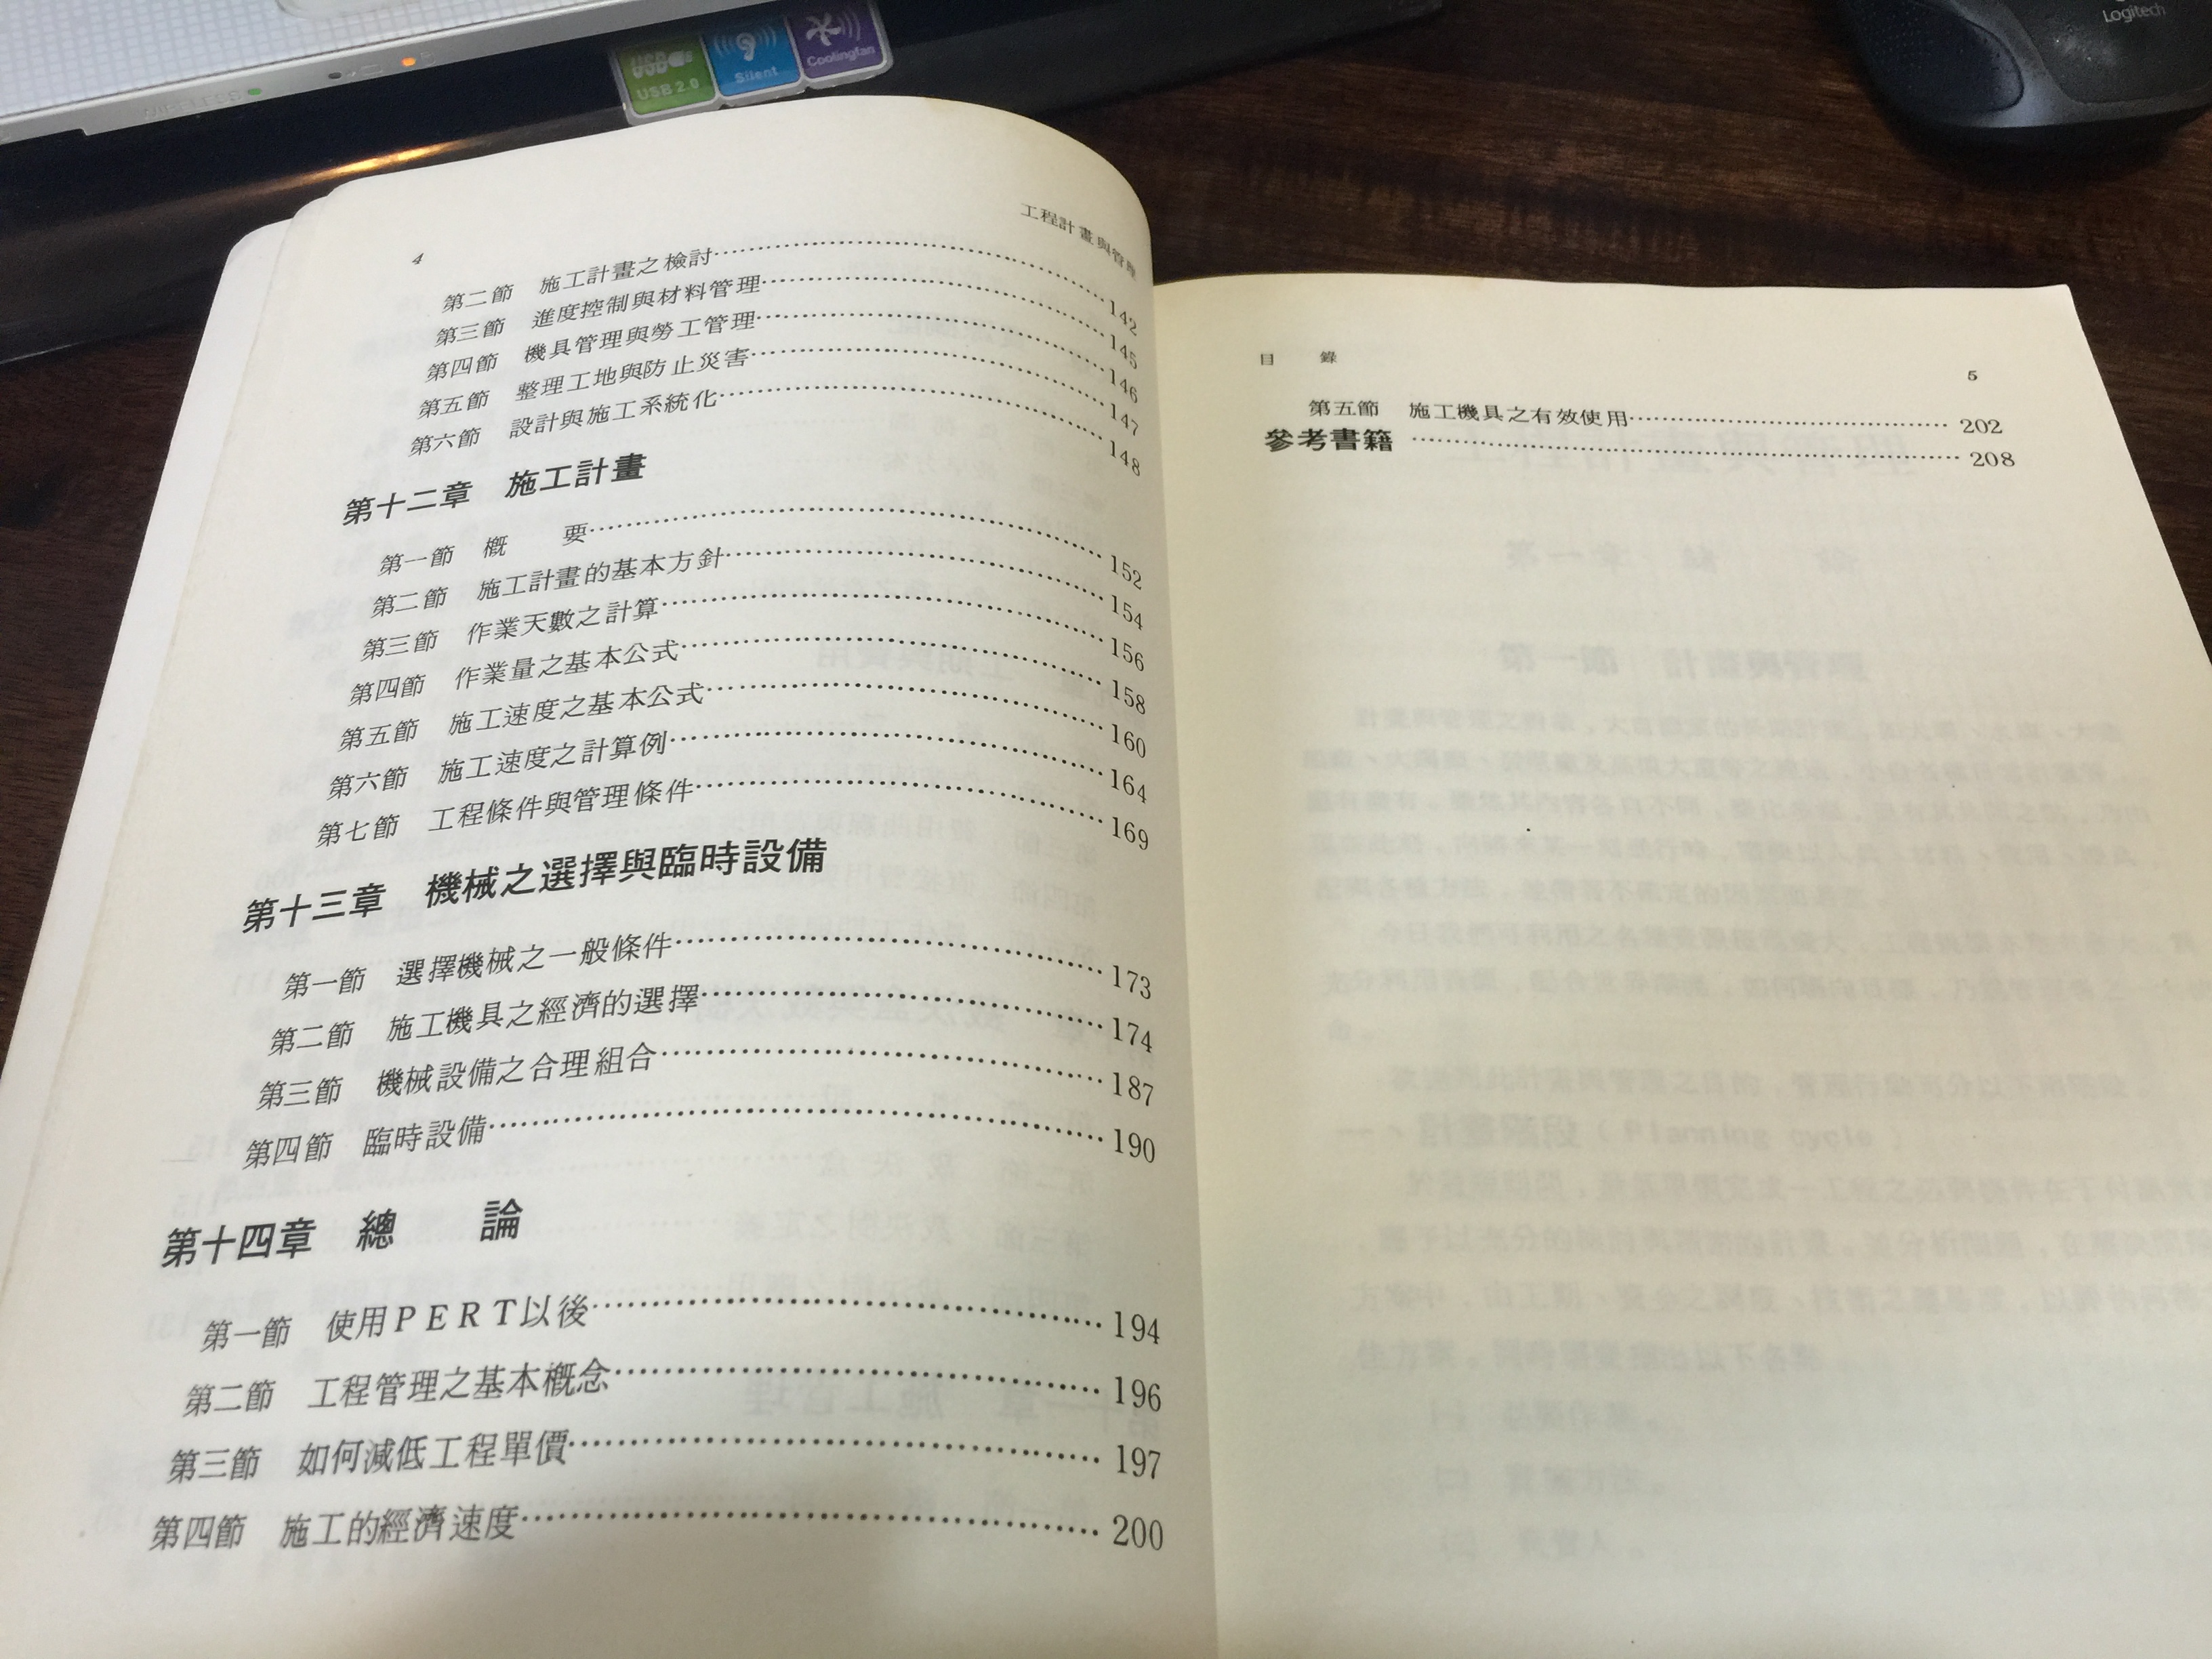 USB
USB 2.0
Silent
Coolingfan
Logitech
4
工程計畫與管理
第二節 施工計畫之檢討……142
第三節 進度控制與材料管理……145
第四節 機具管理與勞工管理……146
第五節 整理工地與防止災害……147
第六節 設計與施工系統化……148
第十二章 施工計畫
第一節 概 要……152
第二節 施工計畫的基本方針……154
第三節 作業天數之計算……156
第四節 作業量之基本公式……158
第五節 施工速度之基本公式……160
第六節 施工速度之計算例……164
第七節 工程條件與管理條件……169
第十三章 機械之選擇與臨時設備
第一節 選擇機械之一般條件……173
第二節 施工機具之經濟的選擇……174
第三節 機械設備之合理組合……187
第四節 臨時設備……190
第十四章 總 論
第一節 使用PERT以後……194
第二節 工程管理之基本概念……196
第三節 如何減低工程單價……197
第四節 施工的經濟速度……200
目 錄
5
第五節 施工機具之有效使用……202
參考書籍……208